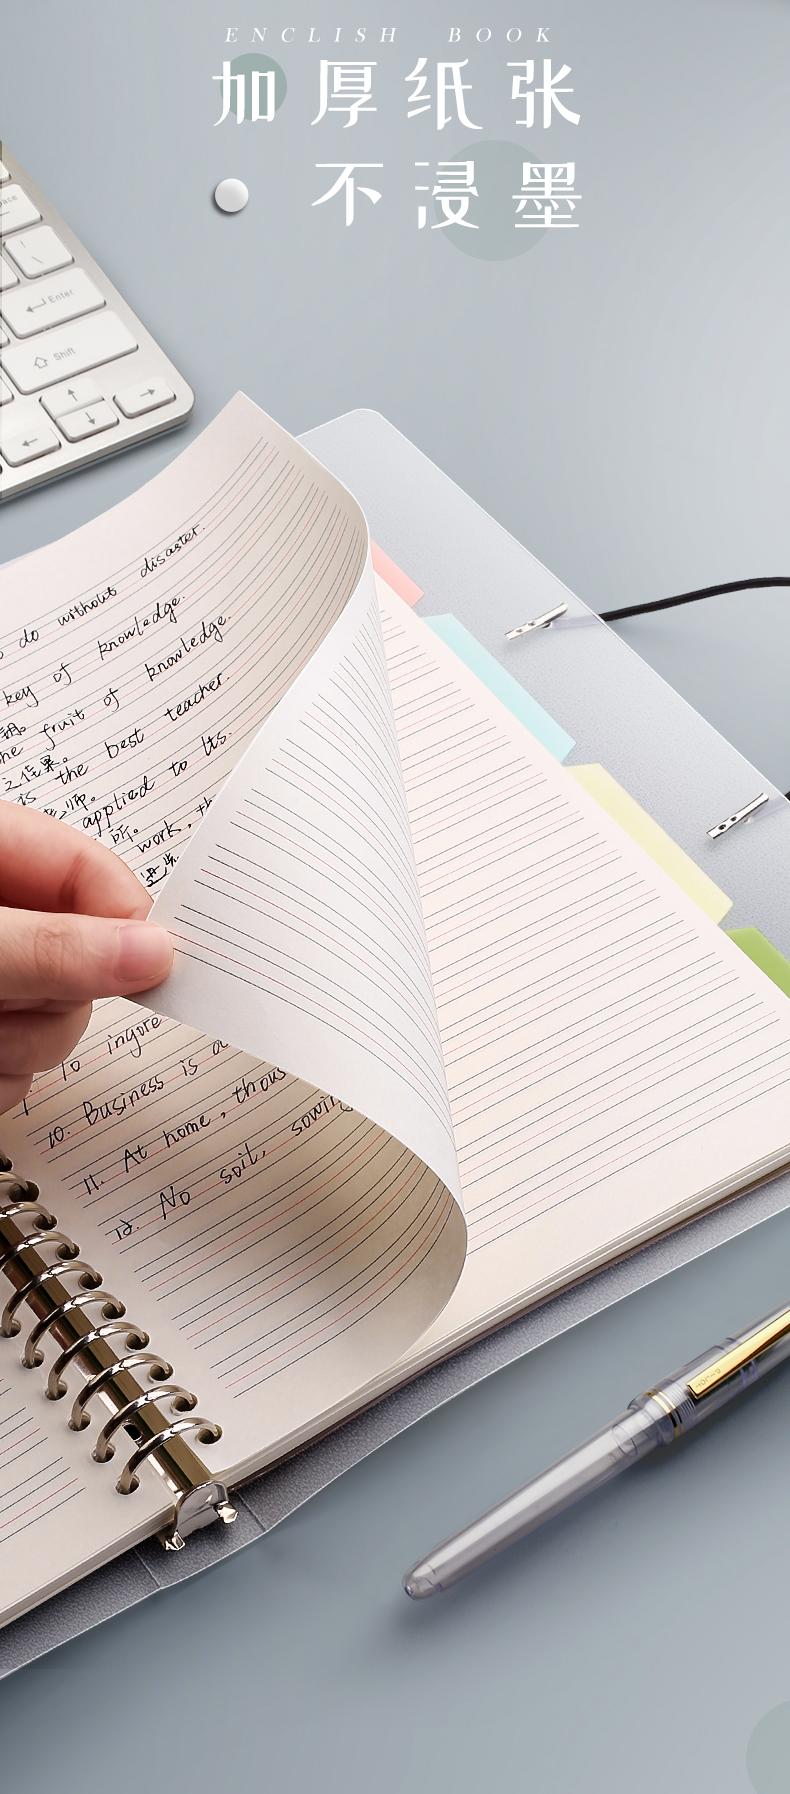 ENCLISH BOOK
加厚纸张
不浸墨
Enter
Shift
do without disaster.
key of knowledge.
the fruit of knowledge.
之佳果。
is the best teacher.
师。
applied to its.
所。
work, th
10 ingore
10. Business is a
11. At home, thous
12. No soil, sowing